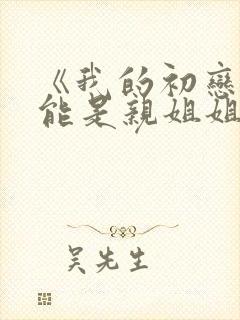 《我的初戀
能是親姐姐
吳先生